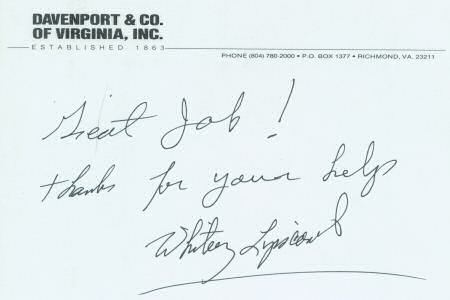 DAVENPORT & CO.
OF VIRGINIA, INC.
ESTABLISHED 1863
PHONE (804) 780-2000 • P.O. BOX 1377 • RICHMOND, VA. 23211
Great Job!
thanks for your help
Whitney Lipscomb